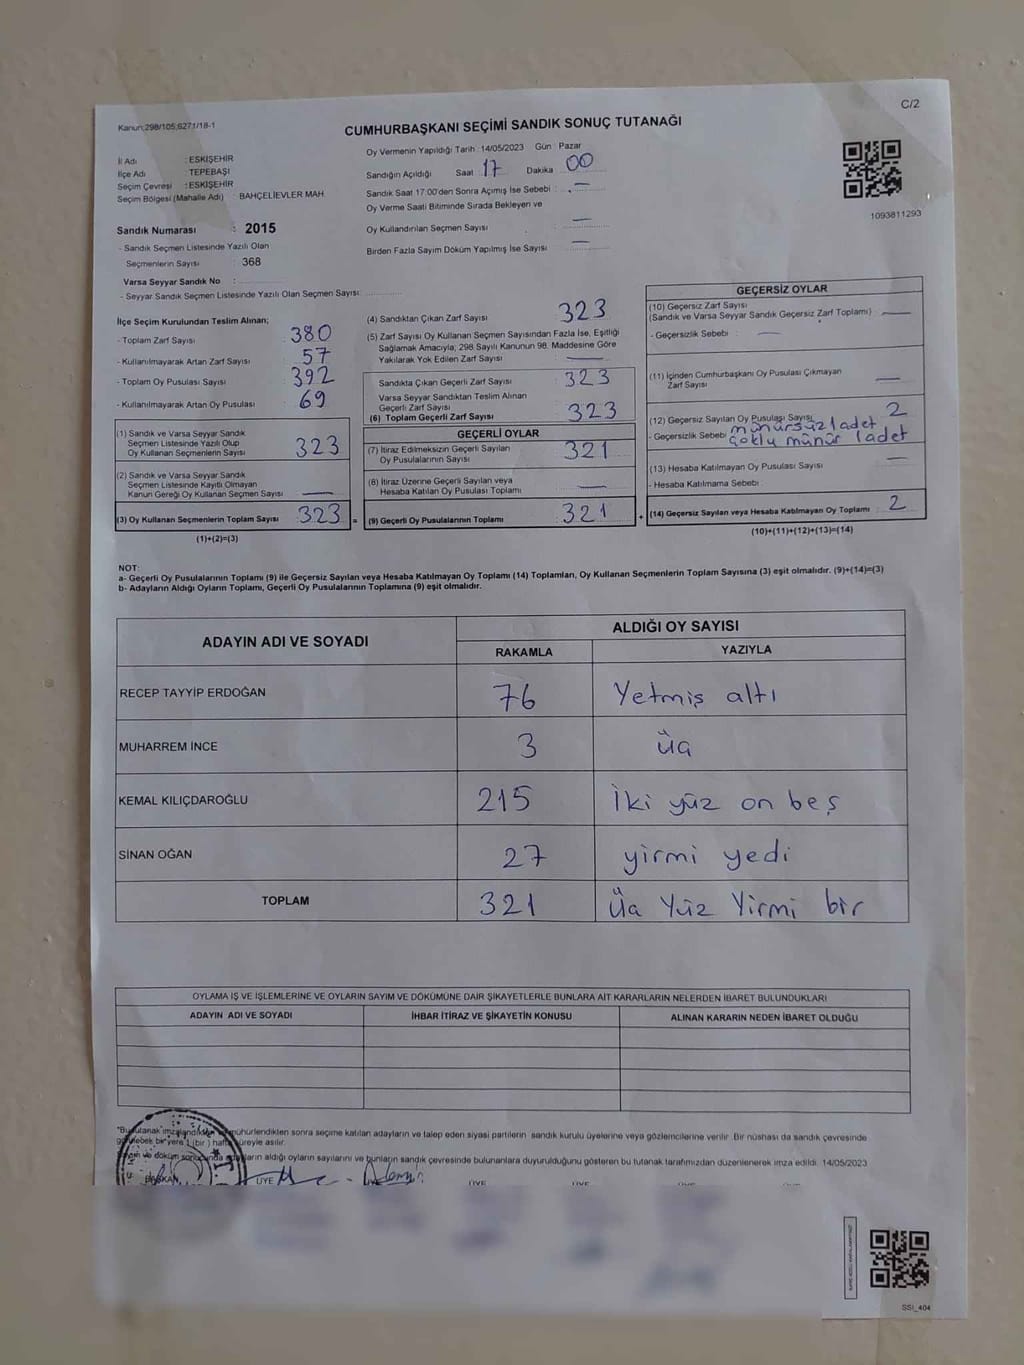 C/2
Kanun:298/105;6271/18-1
CUMHURBAŞKANI SEÇİMİ SANDIK SONUÇ TUTANAĞI
İl Adı : ESKİŞEHİR
İlçe Adı : TEPEBAŞI
Seçim Çevresi : ESKİŞEHİR
Seçim Bölgesi (Mahalle Adı) : BAHÇELİEVLER MAH.
Oy Vermenin Yapıldığı Tarih :14/05/2023 Gün : Pazar
Sandığın Açıldığı Saat 17 Dakika 00
Sandık Saat 17.00'den Sonra Açımış İse Sebebi : —
Oy Verme Saati Bitiminde Sırada Bekleyen ve
Oy Kullandırılan Seçmen Sayısı : —
Birden Fazla Sayım Döküm Yapılmış İse Sayısı —
1093811293
Sandık Numarası : 2015
- Sandık Seçmen Listesinde Yazılı Olan
Seçmenlerin Sayısı : 368
Varsa Seyyar Sandık No :
- Seyyar Sandık Seçmen Listesinde Yazılı Olan Seçmen Sayısı:
İlçe Seçim Kurulundan Teslim Alınan;
- Toplam Zarf Sayısı 380
- Kullanılmayarak Artan Zarf Sayısı 57
- Toplam Oy Pusulası Sayısı 392
- Kullanılmayarak Artan Oy Pusulası 69
(1) Sandık ve Varsa Seyyar Sandık
Seçmen Listesinde Yazılı Olup
Oy Kullanan Seçmenlerin Sayısı 323
(2) Sandık ve Varsa Seyyar Sandık
Seçmen Listesinde Kayıtlı Olmayan
Kanun Gereği Oy Kullanan Seçmen Sayısı —
(3) Oy Kullanan Seçmenlerin Toplam Sayısı 323 =
(1)+(2)=(3)
(4) Sandıktan Çıkan Zarf Sayısı 323
(5) Zarf Sayısı Oy Kullanan Seçmen Sayısından Fazla İse, Eşitliği
Sağlamak Amacıyla; 298 Sayılı Kanunun 98. Maddesine Göre
Yakılarak Yok Edilen Zarf Sayısı —
Sandıkta Çıkan Geçerli Zarf Sayısı 323
Varsa Seyyar Sandıktan Teslim Alınan
Geçerli Zarf Sayısı
(6) Toplam Geçerli Zarf Sayısı 323
GEÇERLİ OYLAR
(7) İtiraz Edilmeksizin Geçerli Sayılan
Oy Pusulalarının Sayısı 321
(8) İtiraz Üzerine Geçerli Sayılan veya
Hesaba Katılan Oy Pusulası Toplamı —
(9) Geçerli Oy Pusulalarının Toplamı 321 +
GEÇERSİZ OYLAR
(10) Geçersiz Zarf Sayısı
(Sandık ve Varsa Seyyar Sandık Geçersiz Zarf Toplamı) —
- Geçersizlik Sebebi : —
(11) İçinden Cumhurbaşkanı Oy Pusulası Çıkmayan
Zarf Sayısı —
(12) Geçersiz Sayılan Oy Pusulası Sayısı 2
- Geçersizlik Sebebi mühürsüz 1 adet
çoklu mühür 1 adet
(13) Hesaba Katılmayan Oy Pusulası Sayısı —
- Hesaba Katılmama Sebebi :
(14) Geçersiz Sayılan veya Hesaba Katılmayan Oy Toplamı 2
(10)+(11)+(12)+(13)=(14)
NOT:
a- Geçerli Oy Pusulalarının Toplamı (9) ile Geçersiz Sayılan veya Hesaba Katılmayan Oy Toplamı (14) Toplamları, Oy Kullanan Seçmenlerin Toplam Sayısına (3) eşit olmalıdır. (9)+(14)=(3)
b- Adayların Aldığı Oyların Toplamı, Geçerli Oy Pusulalarının Toplamına (9) eşit olmalıdır.
ADAYIN ADI VE SOYADI
ALDIĞI OY SAYISI
RAKAMLA YAZIYLA
RECEP TAYYİP ERDOĞAN 76 Yetmiş altı
MUHARREM İNCE 3 üç
KEMAL KILIÇDAROĞLU 215 İki yüz on beş
SİNAN OĞAN 27 yirmi yedi
TOPLAM 321 Üç Yüz Yirmi bir
OYLAMA İŞ VE İŞLEMLERİNE VE OYLARIN SAYIM VE DÖKÜMÜNE DAİR ŞİKAYETLERLE BUNLARA AİT KARARLARIN NELERDEN İBARET BULUNDUKLARI
ADAYIN ADI VE SOYADI İHBAR İTİRAZ VE ŞİKAYETİN KONUSU ALINAN KARARIN NEDEN İBARET OLDUĞU
mühürlendikten sonra seçime katılan adayların ve talep eden siyasi partilerin sandık kurulu üyelerine veya gözlemcilerine verilir. Bir nüshası da sandık çevresinde
görülebilecek bir yere 1 (bir) hafta süreyle asılır.
adayların aldığı oyların sayılarını ve bunların sandık çevresinde bulunanlara duyurulduğunu gösteren bu tutanak tarafımızdan düzenlenerek imza edildi. 14/05/2023
BAŞKAN ÜYE ÜYE ÜYE ÜYE
SSİ_404